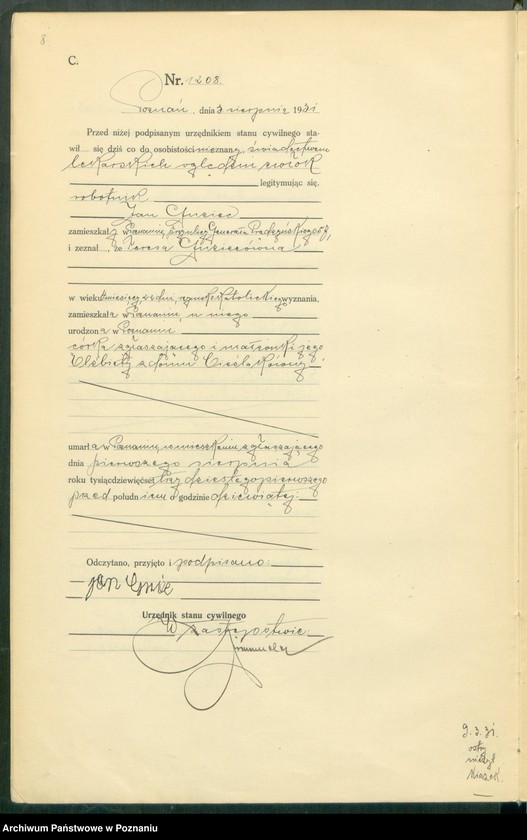 8
C.
Nr. 1208.
Poznań, dnia 3 sierpnia 1931
Przed niżej podpisanym urzędnikiem stanu cywilnego sta-
wił się dziś co do osobistości nieznany, świadectwem
lekarskich oględzin zwłok
legitymując się,
robotnik
Jan
zamieszkał y w Poznaniu, przy ulicy Generała Prądzyńskiego
i zeznał, że Teresa
w wieku miesięcy dni, rzymsko katolickiego wyznania,
zamieszkała w Poznaniu u niego
urodzona w Poznaniu
córka zgłaszającego i małżonki jego
Elżbiety z domu
umarła w Poznaniu, w mieszkaniu zgłaszającego
dnia pierwszego sierpnia
roku tysiąc dziewięćset trzydziestego pierwszego
przed południem o godzinie dziewiątej.
Odczytano, przyjęto i podpisano:
Jan
Urzędnik stanu cywilnego
W zastępstwie.
9. 3. 31.
ostry
nieżyt
kiszek
Archiwum Państwowe w Poznaniu